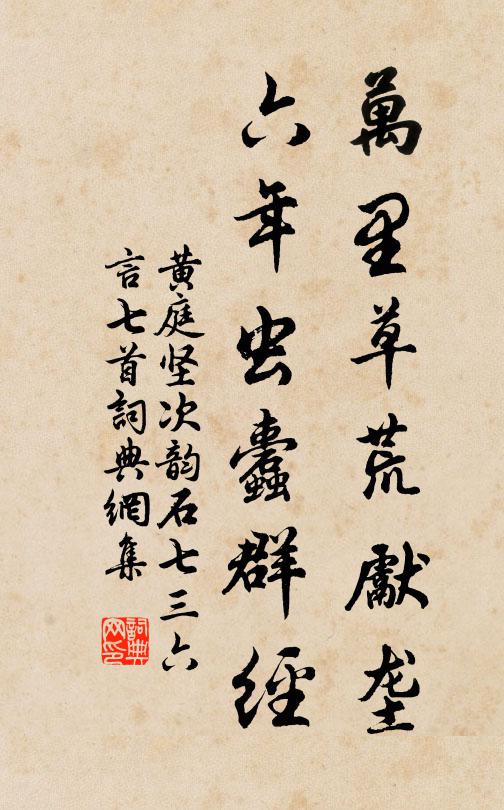 萬里草荒獻垄
六年虫蠹群經
黄庭坚次韵石七三六
言七首詞典網集
詞典
网印